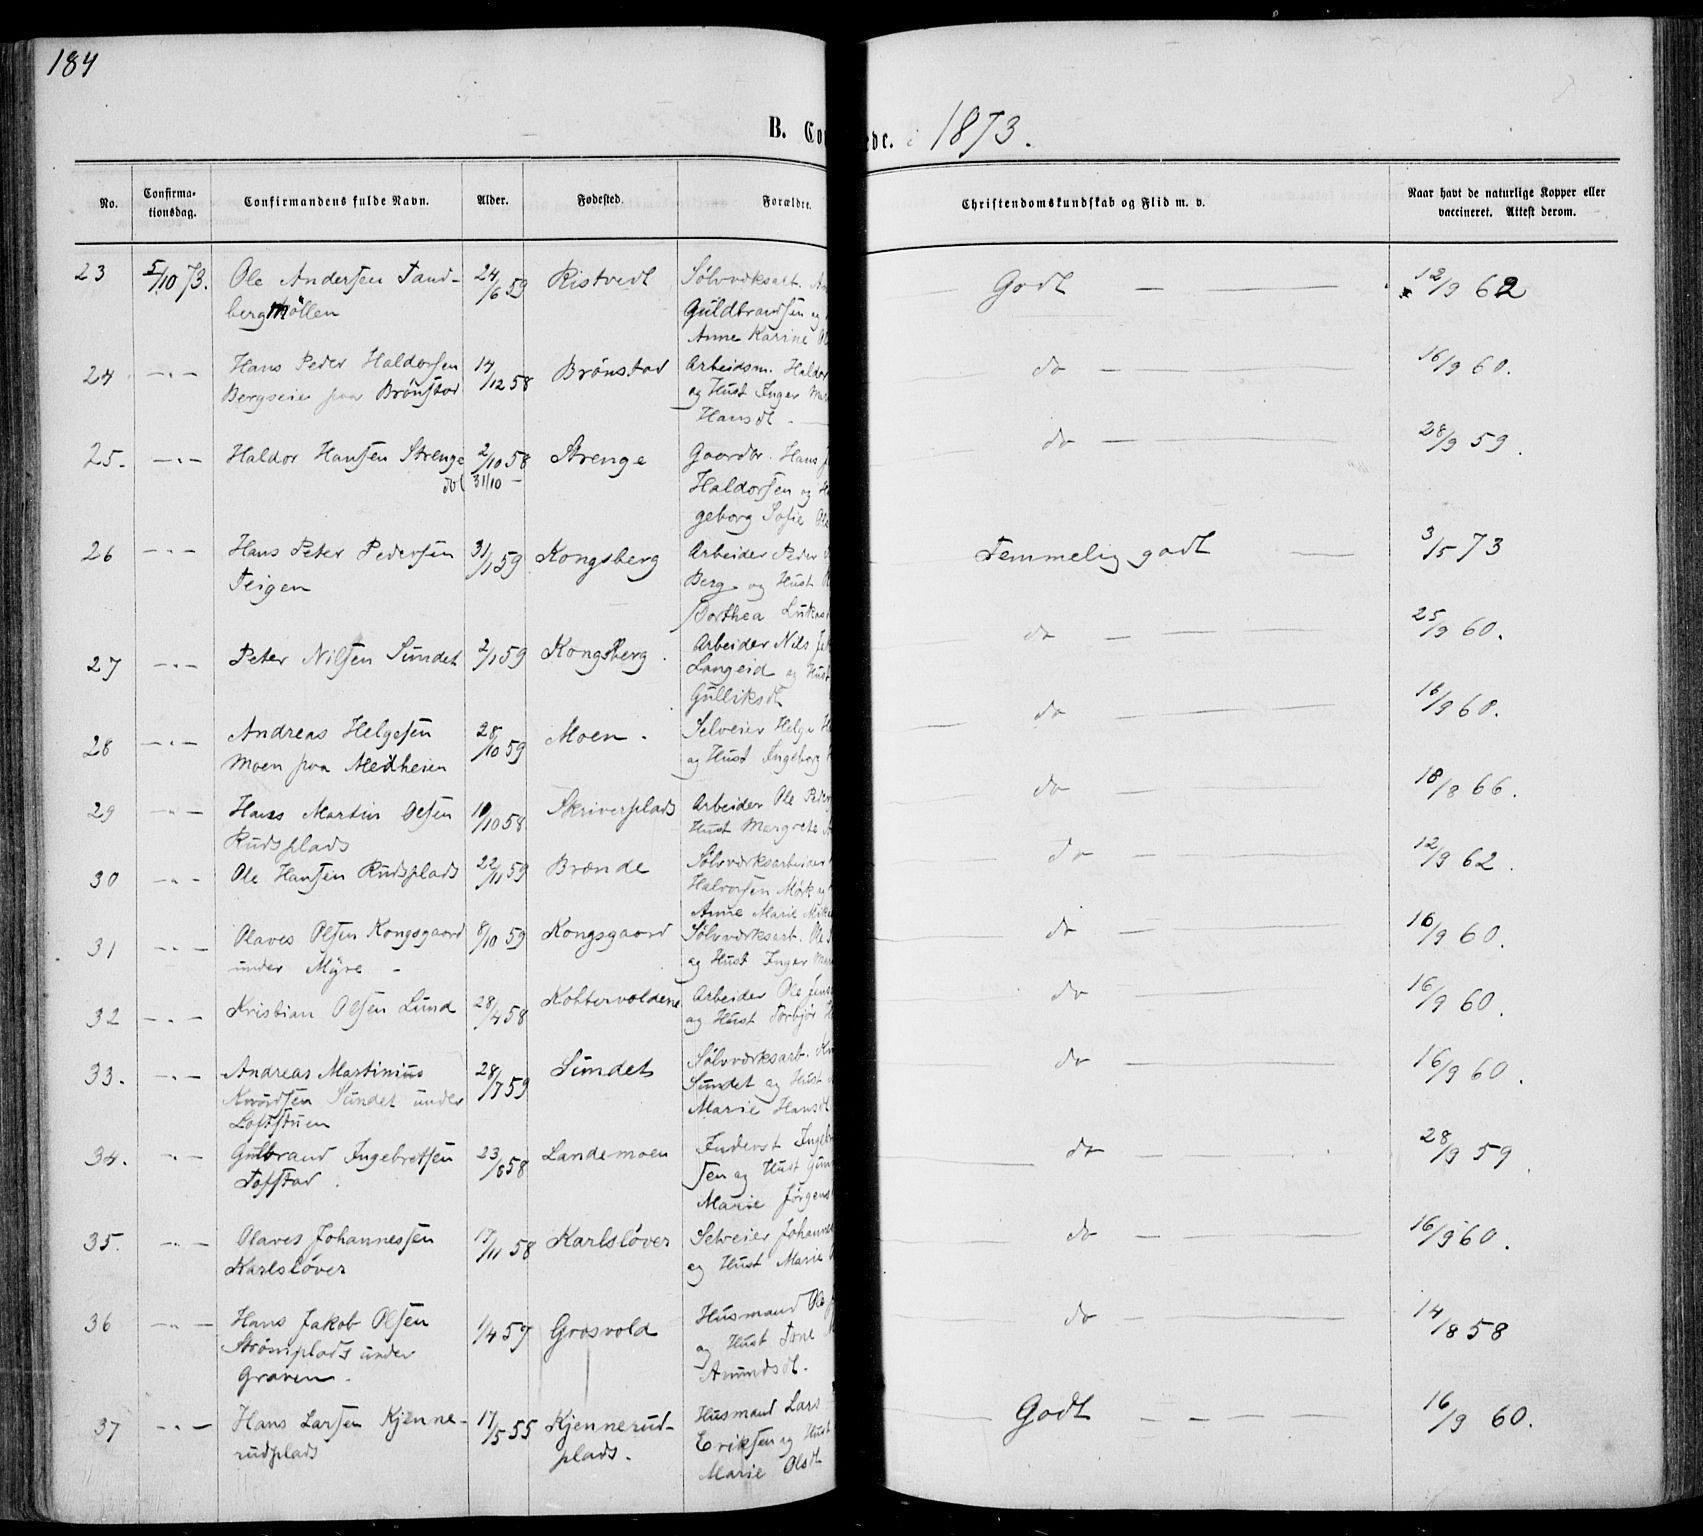 184
B. Co
edr. i 1873.
No.
Confirma-
tionsdag.
Confirmandens fulde Navn.
Alder.
Fødested.
Forældre.
Christendomskundskab og Flid m. v.
Naar havt de naturlige Kopper eller
vaccineret. Attest derom.
23 5/10 73. Ole Andersen Sand- 24/6 59 Ristvedt Sølvværksart. An Godt — — 12/9 62
bergmöllen Guldbrandsen og
Anne Karine
24. — " — Hans Peder Haldorsen 14/12 58 Brönstad Arbeidsm. Haldor do — — 16/9 60.
Bergseie paa Brönstad og Hust Inger
Hansdt. —
25. — " — Haldor Hansen Strenge 2/10 58 Strenge Gaardbr. Hans do — — 28/9 59.
döl 31/10 — Haldorsen og
geborg Sofie Ole
26 — " — Hans Peter Pedersen 31/1 59 Kongsberg Arbeider Peder Temmelig godt — 3/5 73
Teigen Berg og Hust
Dorthea Lukas
27 — " — Peter Nilsen Sundet 2/1 59 Kongsberg. Arbeider Nils do — — 25/9 60.
Langeid og Hust
Gulliksdt
28 — " — Andreas Helgesen 28/10 59 Moen. Selveier Helge do — — 16/9 60.
Moen paa Medheien og Hust Ingeborg
29 — " — Hans Martin Olsen 10/10 58 Skriverplads Arbeider Ole Peder do — — 18/8 66.
Rudsplads Hust Margrete
30 — " — Ole Hansen Rudsplads 22/11 59 Brænde Sølvværksarbeider do — — 12/9 62.
Halvorsen Mørk og
Anne Marie
31 — " — Olaves Olsen Kongsgaard 8/10 59 Kongsgaard Sølvværksart. Ole do — — 16/9 60.
under Myre — og Hust Inger
32 — " — Kristian Olsen Lund 28/4 58 Kobbervoldene Arbeider Ole Jens do — — 16/9 60.
og Hust Torbjør
33. — " — Andreas Martinius 28/7 59 Sundet Sølvværksart. do — — 16/9 60.
Knudsen Sundet under Sundet og Hust
Loftstuen Marie Hansdt
34. — " — Gulbrand Ingebretsen 23/8 58 Landemoen Inderst Ingebr do — — 28/9 59.
Tofstad. sen og Hust Gun
Marie Jörgens
35. — " — Olaves Johannessen 17/11 58 Karlslöver Selveier Johannes do — — 16/9 60.
Karlslöver og Hust Marie
36 — " — Hans Jakob Olsen 1/4 59 Grosvold Husmand Ole do — — 14/8 58
Strömplads under og Hust Tone
Graven. Amundsdt.
37 — " — Hans Larsen Kjenne- 17/5 55 Kjennerud- Husmand Lars Godt — — — 16/9 60.
rudplads plads. Eriksen og Hust
Marie Olsdt